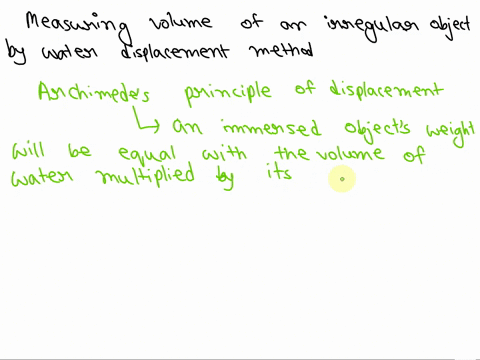 Measuring volume of an irregular object
by water displacement method
Archimedes principle of displacement
↳ an immersed object's weight
will be equal with the volume of
water multiplied by its